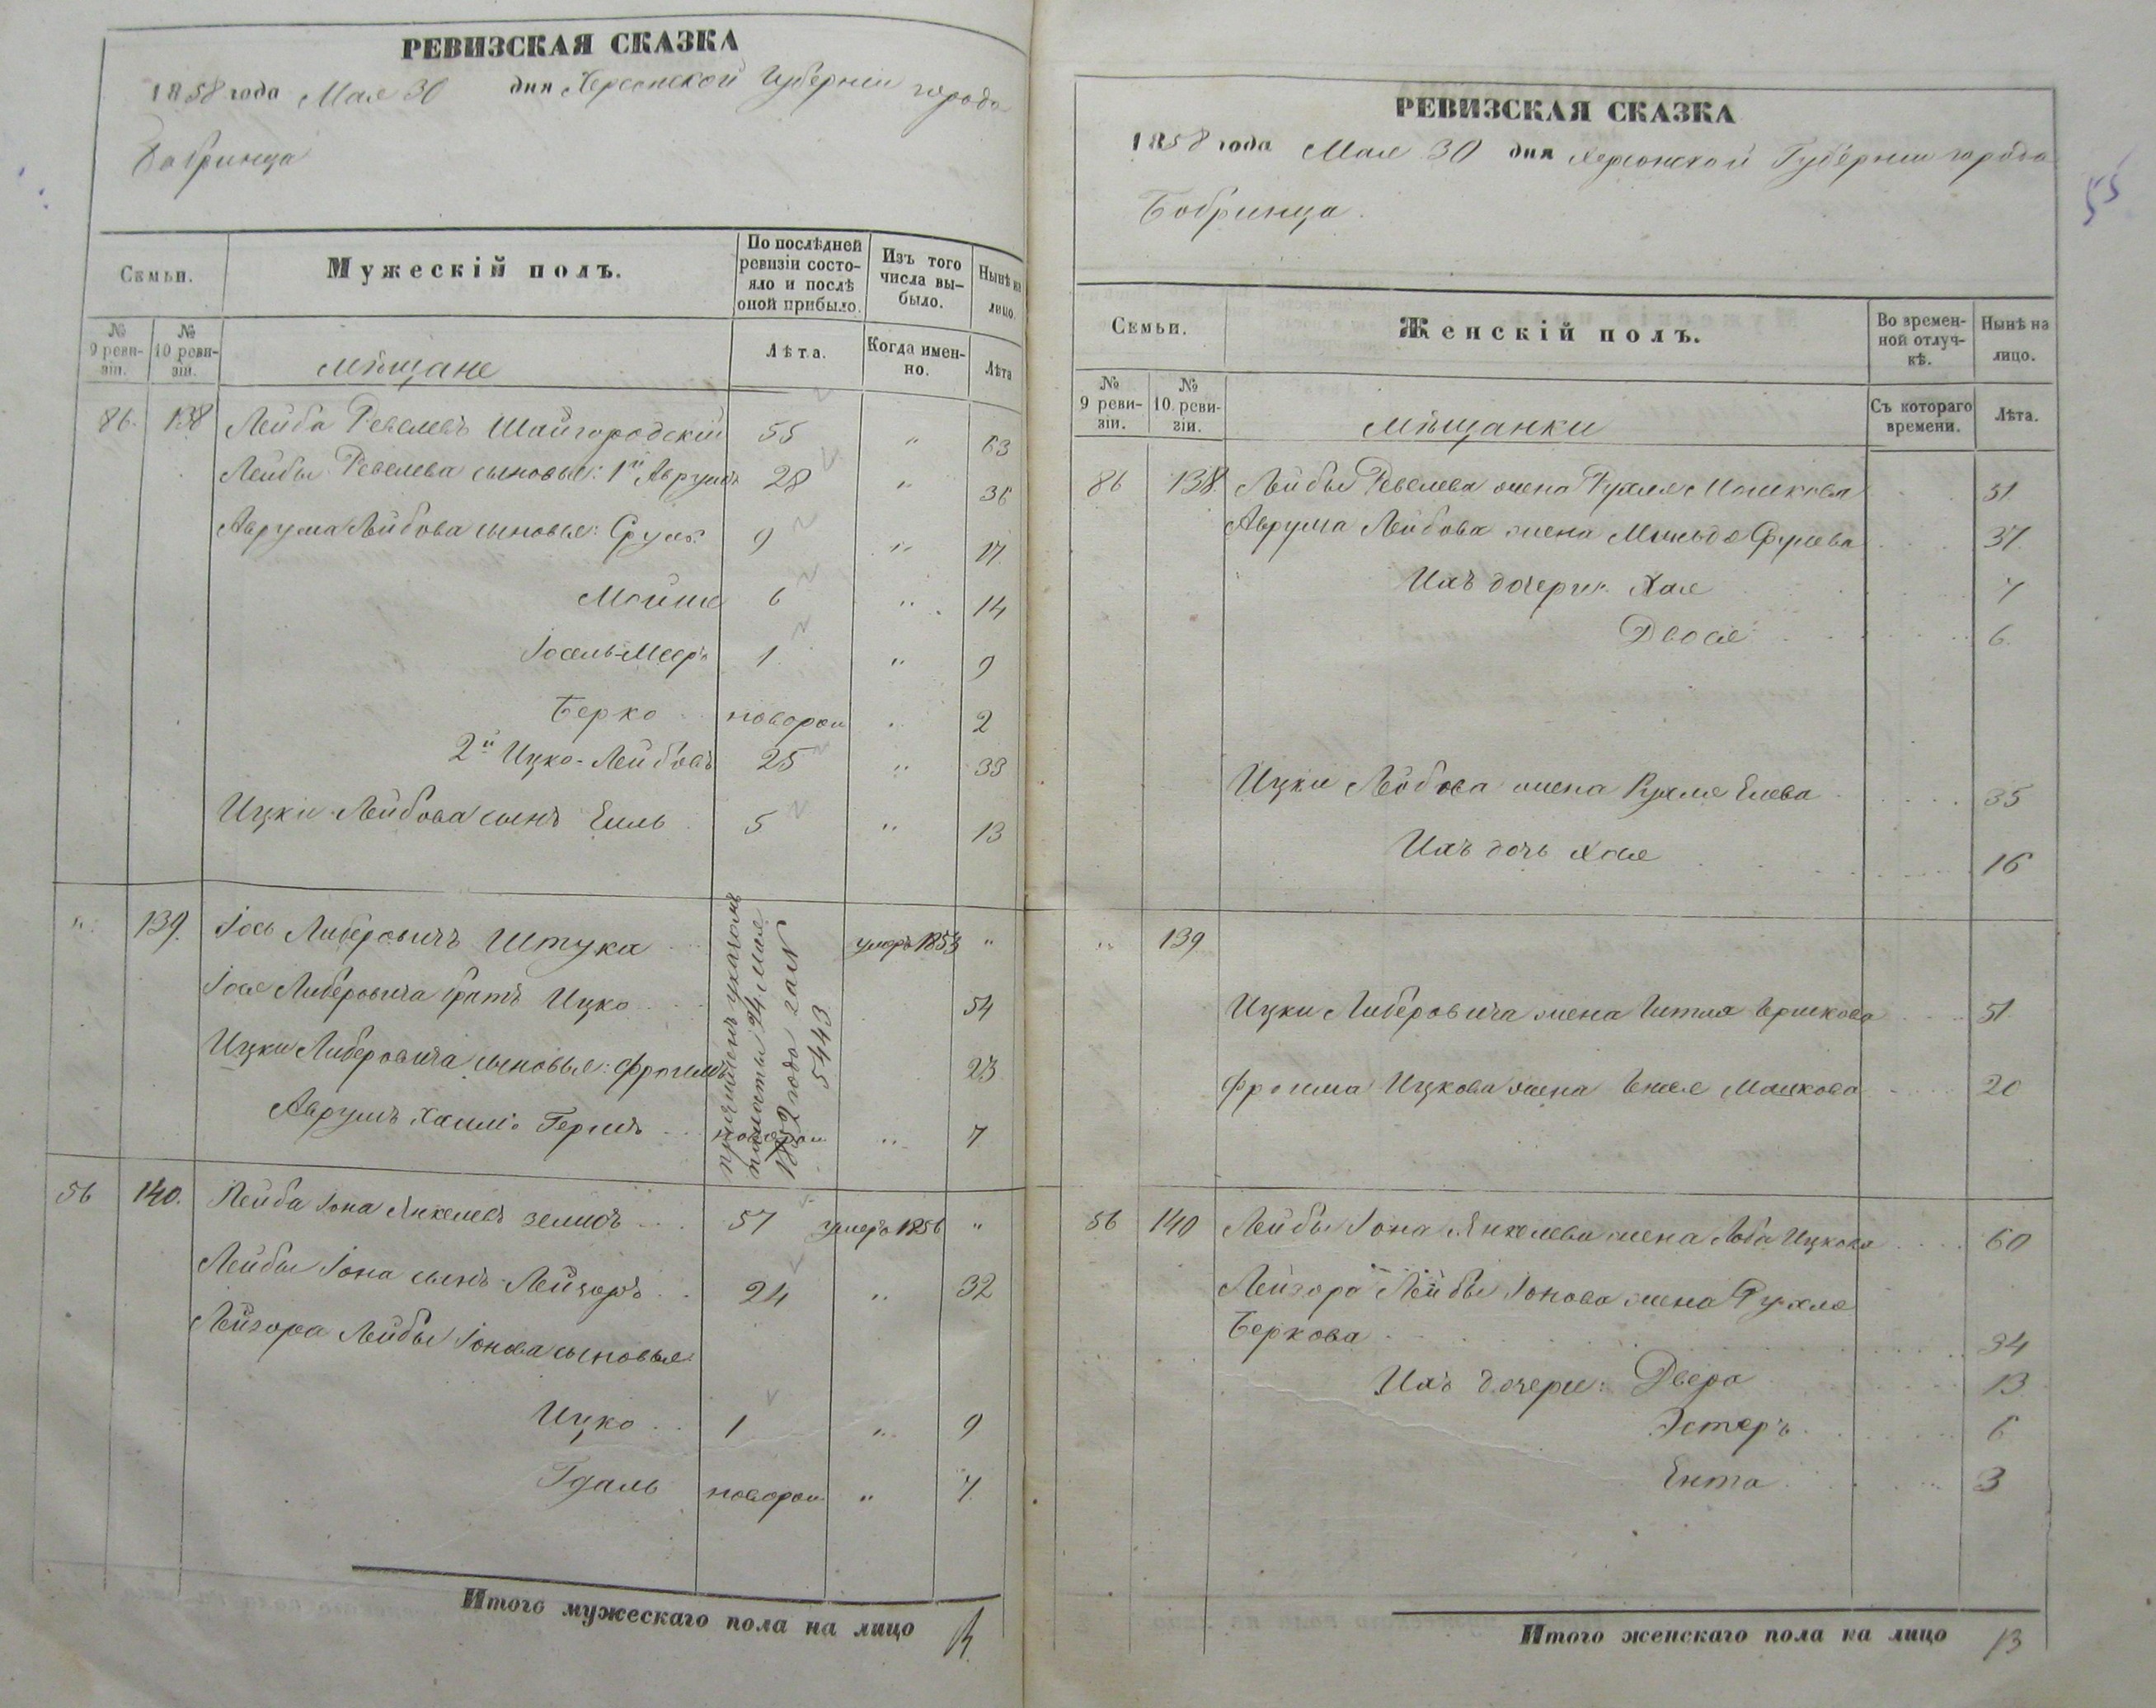 РЕВИЗСКАЯ СКАЗКА
1858 года Мая 30 дня Херсонской Губерніи города
Бобринца
Семьи.
Мужескій полъ.
По послѣдней ревизіи состояло и послѣ оной прибыло.
Изъ того числа выбыло.
Нынѣ на лицо.
№ 9 ревизіи.
№ 10 ревизіи.
мѣщане
Лѣта.
Когда именно.
Лѣта
86. 138 Лейба Ревелевъ Шайгородскій 55 " 63
Лейбы Ревелева сыновья: 1й Аврумъ 28 " 36
Аврума Лейбова сыновья: Сруль 9 " 17.
Мойше 6 " 14
Іосель-Меєръ 1 " 9
Берко новорож 2
2й Ицко-Лейбовъ 25 " 33
Ицки Лейбова сынъ Ель 5 " 13
" 139. Іось Либеровичъ Штука умеръ 1853 "
Іося Либеровича братъ Ицко 54
Ицки Либеровича сыновья: Фроимъ 23
Аврумъ Хаимъ Гершъ новорож " 7
причислен указомъ
палаты 24 Мая
1852 года за №
5443
56 140. Лейба Іона Янкелевъ 57 умеръ 1856 "
Лейбы Іона сынъ Лейзоръ 24 " 32
Лейзора Лейбы Іонова сыновья:
Ицко 1 " 9
Гдаль новорож " 7.
Итого мужескаго пола на лицо
РЕВИЗСКАЯ СКАЗКА
1858 года Мая 30 дня Херсонской Губерніи города
Бобринца.
55
Семьи.
Женскій полъ.
Во временной отлучкѣ.
Нынѣ на лицо.
№ 9 ревизіи.
№ 10. ревизіи.
мѣщанки
Съ котораго времени.
Лѣта.
86 138. Лейбы Ревелева жена Рухля Мошкова 51
Аврума Лейбова жена Срулева 37.
Ихъ дочери: Хая 7
Двося 6.
Ицки Лейбова жена Рухля Елева 35
Ихъ дочь Хая 16
" 139
Ицки Либеровича жена Гитля Ершкова 51
Фроима Ицкова жена Енея Мошкова 20
56 140 Лейбы Іона Янкелева жена Лоба Ицкова 60
Лейзора Лейбы Іонова жена Рухля
Беркова 34
Ихъ дочери: Двера 13
Эстеръ 6
Ента 3
Итого женскаго пола на лицо 13